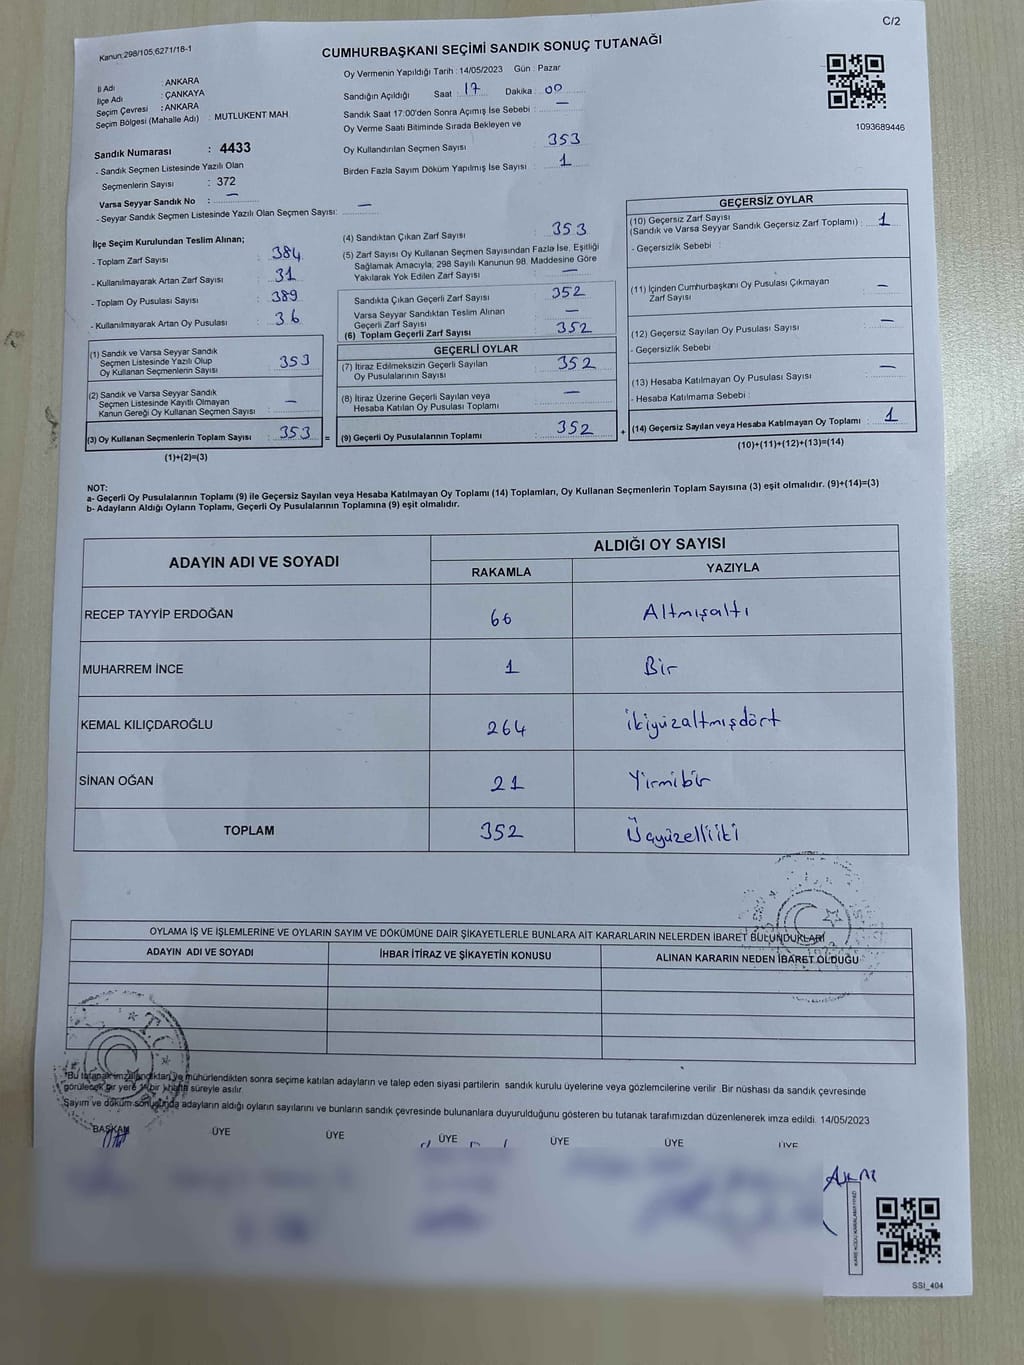 C/2
Kanun:298/105,6271/18-1
CUMHURBAŞKANI SEÇİMİ SANDIK SONUÇ TUTANAĞI
İl Adı : ANKARA
İlçe Adı : ÇANKAYA
Seçim Çevresi : ANKARA
Seçim Bölgesi (Mahalle Adı) : MUTLUKENT MAH
Sandık Numarası : 4433
- Sandık Seçmen Listesinde Yazılı Olan
Seçmenlerin Sayısı : 372
Varsa Seyyar Sandık No : —
- Seyyar Sandık Seçmen Listesinde Yazılı Olan Seçmen Sayısı: —
Oy Vermenin Yapıldığı Tarih : 14/05/2023 Gün : Pazar
Sandığın Açıldığı Saat : 17 Dakika : 00
Sandık Saat 17:00'den Sonra Açımış İse Sebebi : —
Oy Verme Saati Bitiminde Sırada Bekleyen ve
Oy Kullandırılan Seçmen Sayısı : 353
Birden Fazla Sayım Döküm Yapılmış İse Sayısı : 1
1093689446
İlçe Seçim Kurulundan Teslim Alınan;
- Toplam Zarf Sayısı : 384
- Kullanılmayarak Artan Zarf Sayısı : 31
- Toplam Oy Pusulası Sayısı : 389
- Kullanılmayarak Artan Oy Pusulası : 36
(1) Sandık ve Varsa Seyyar Sandık
Seçmen Listesinde Yazılı Olup
Oy Kullanan Seçmenlerin Sayısı : 353
(2) Sandık ve Varsa Seyyar Sandık
Seçmen Listesinde Kayıtlı Olmayan
Kanun Gereği Oy Kullanan Seçmen Sayısı : —
(3) Oy Kullanan Seçmenlerin Toplam Sayısı : 353 =
(1)+(2)=(3)
(4) Sandıktan Çıkan Zarf Sayısı : 353
(5) Zarf Sayısı Oy Kullanan Seçmen Sayısından Fazla İse, Eşitliği
Sağlamak Amacıyla, 298 Sayılı Kanunun 98. Maddesine Göre
Yakılarak Yok Edilen Zarf Sayısı : —
Sandıkta Çıkan Geçerli Zarf Sayısı : 352
Varsa Seyyar Sandıktan Teslim Alınan
Geçerli Zarf Sayısı : —
(6) Toplam Geçerli Zarf Sayısı : 352
GEÇERLİ OYLAR
(7) İtiraz Edilmeksizin Geçerli Sayılan
Oy Pusulalarının Sayısı : 352
(8) İtiraz Üzerine Geçerli Sayılan veya
Hesaba Katılan Oy Pusulası Toplamı : —
(9) Geçerli Oy Pusulalarının Toplamı : 352 +
GEÇERSİZ OYLAR
(10) Geçersiz Zarf Sayısı
(Sandık ve Varsa Seyyar Sandık Geçersiz Zarf Toplamı) : 1
- Geçersizlik Sebebi :
(11) İçinden Cumhurbaşkanı Oy Pusulası Çıkmayan
Zarf Sayısı : —
(12) Geçersiz Sayılan Oy Pusulası Sayısı : —
- Geçersizlik Sebebi :
(13) Hesaba Katılmayan Oy Pusulası Sayısı : —
- Hesaba Katılmama Sebebi :
(14) Geçersiz Sayılan veya Hesaba Katılmayan Oy Toplamı : 1
(10)+(11)+(12)+(13)=(14)
NOT:
a- Geçerli Oy Pusulalarının Toplamı (9) ile Geçersiz Sayılan veya Hesaba Katılmayan Oy Toplamı (14) Toplamları, Oy Kullanan Seçmenlerin Toplam Sayısına (3) eşit olmalıdır. (9)+(14)=(3)
b- Adayların Aldığı Oyların Toplamı, Geçerli Oy Pusulalarının Toplamına (9) eşit olmalıdır.
ADAYIN ADI VE SOYADI ALDIĞI OY SAYISI
RAKAMLA YAZIYLA
RECEP TAYYİP ERDOĞAN 66 Altmışaltı
MUHARREM İNCE 1 Bir
KEMAL KILIÇDAROĞLU 264 ikiyüzaltmışdört
SİNAN OĞAN 21 Yirmibir
TOPLAM 352 Üçyüzelliiki
OYLAMA İŞ VE İŞLEMLERİNE VE OYLARIN SAYIM VE DÖKÜMÜNE DAİR ŞİKAYETLERLE BUNLARA AİT KARARLARIN NELERDEN İBARET BULUNDUKLARI
ADAYIN ADI VE SOYADI İHBAR İTİRAZ VE ŞİKAYETİN KONUSU ALINAN KARARIN NEDEN İBARET OLDUĞU
*Bu tutanak imzalandıktan ve mühürlendikten sonra seçime katılan adayların ve talep eden siyasi partilerin sandık kurulu üyelerine veya gözlemcilerine verilir. Bir nüshası da sandık çevresinde
görülecek bir yere 1 bir hafta süreyle asılır.
Sayım ve döküm sonuşunda adayların aldığı oyların sayılarını ve bunların sandık çevresinde bulunanlara duyurulduğunu gösteren bu tutanak tarafımızdan düzenlenerek imza edildi. 14/05/2023
BAŞKAN ÜYE ÜYE ÜYE ÜYE ÜYE ÜYE
SSI_404